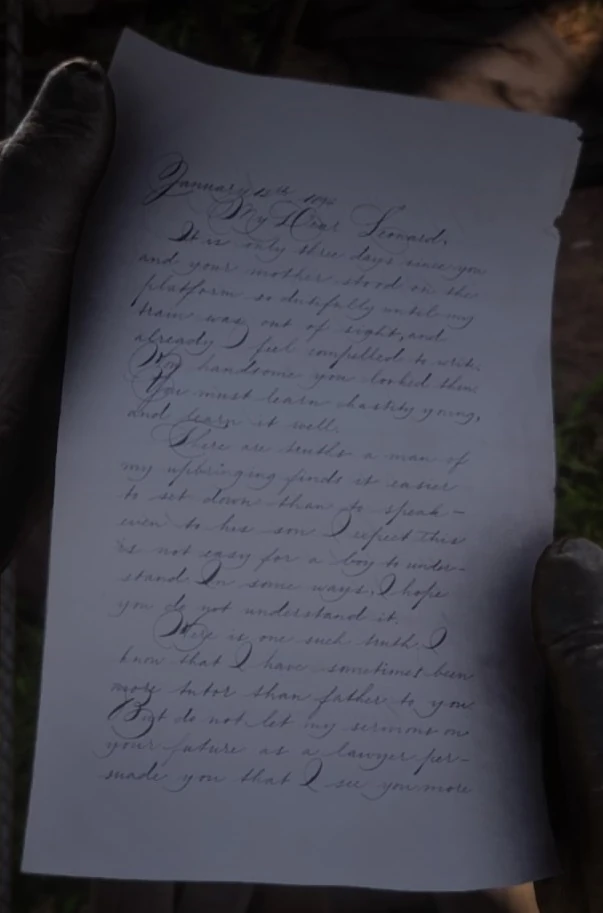 January 12th 1896
My Dear Leonard,
It is only three days since you
and your mother stood on the
platform so dutifully until my
train was out of sight, and
already I feel compelled to write.
handsome you looked then.
You must learn chastity young,
and learn it well.
There are truths a man of
my upbringing finds it easier
to set down than to speak –
even to his son I expect this
is not easy for a boy to under-
stand. In some ways, I hope
you do not understand it.
Here is one such truth. I
know that I have sometimes been
more tutor than father to you
But do not let my sermons on
your future as a lawyer per-
suade you that I see you more